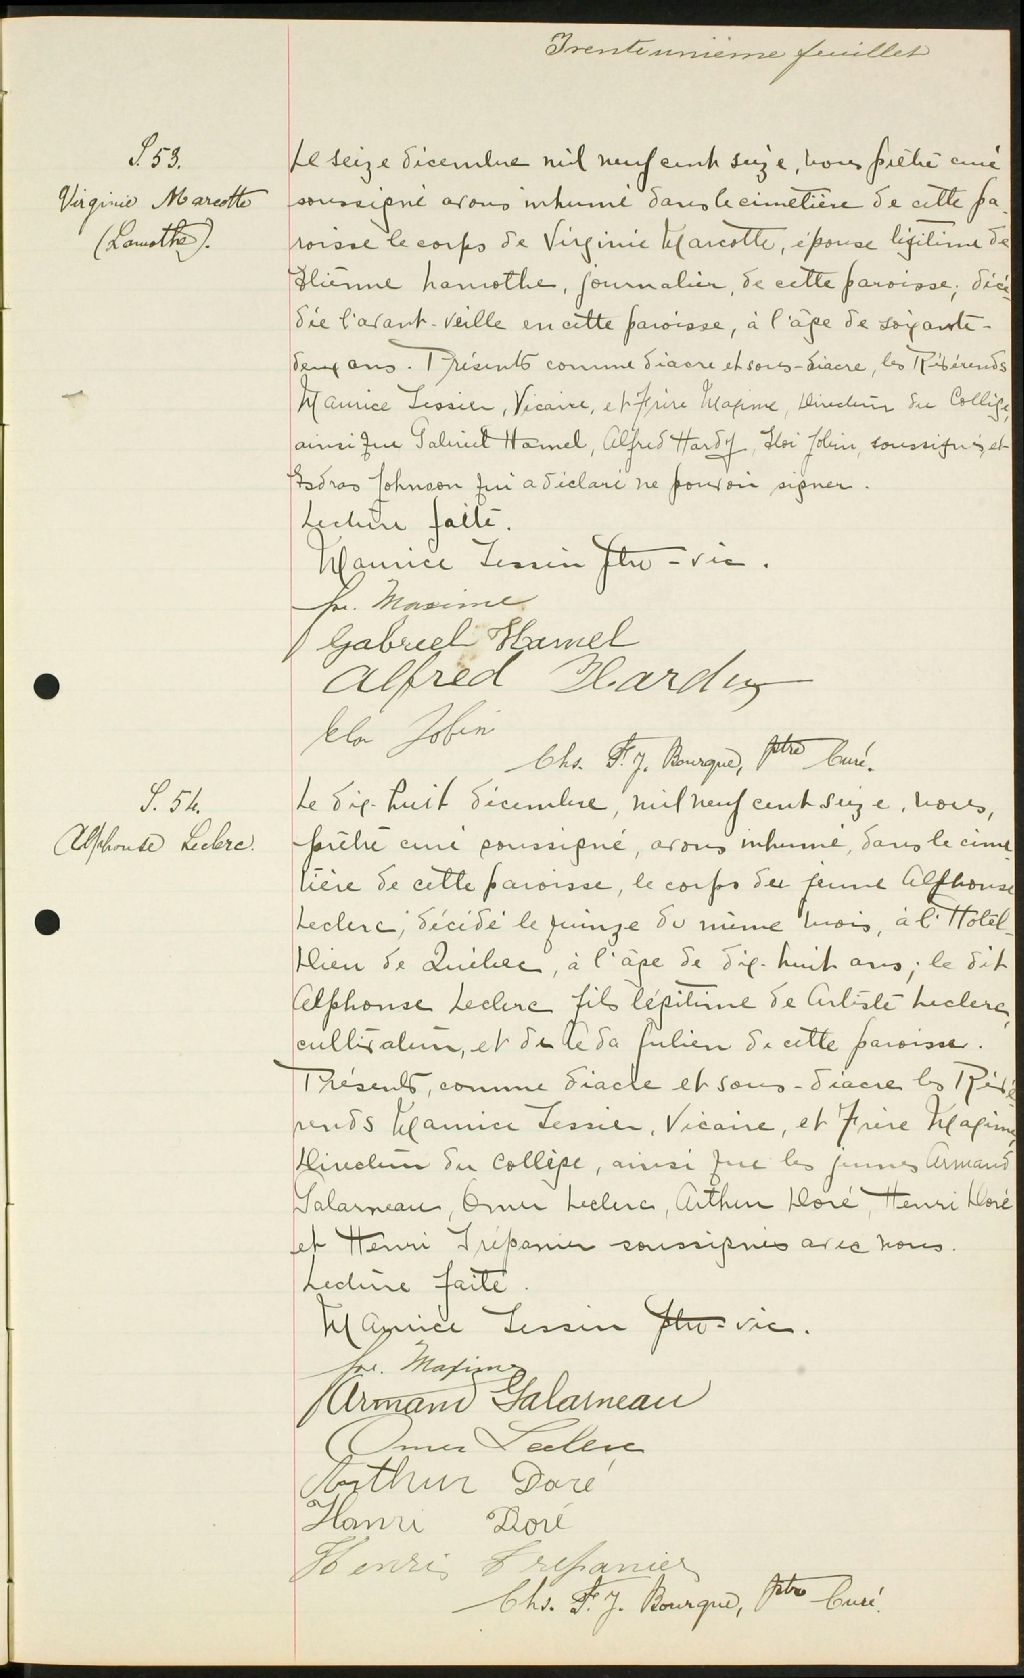 Trente unième feuillet
S. 53.
Virginie Marcotte
(Lamothe).
Le seize décembre mil neuf cent seize, nous prêtre curé
soussigné avons inhumé dans le cimetière de cette pa-
roisse le corps de Virginie Marcotte, épouse légitime de
Etienne Lamothe, journalier, de cette paroisse; décé-
dée l'avant-veille en cette paroisse, à l'âge de soixante-
deux ans. Présents comme diacre et sous-diacre, les Révérends
Maurice Tessier, Vicaire, et Frère Maxime, Directeur du Collège,
ainsi que Gabriel Hamel, Alfred Hardy, Eloi Jobin, soussignés et
Esdras Johnson qui a déclaré ne pouvoir signer.
Lecture faite.
Maurice Tessier ptre-vic.
fre. Maxime
Gabriel Hamel
Alfred Hardy
Eloi Jobin
Chs. F. J. Bourque, ptre Curé.
S. 54.
Alphonse Leclerc.
Le dix-huit décembre, mil neuf cent seize, nous,
prêtre curé soussigné, avons inhumé, dans le cime-
tière de cette paroisse, le corps du jeune Alphonse
Leclerc, décédé le quinze du même mois, à l'Hôtel-
Dieu de Québec, à l'âge de dix-huit ans; le dit
Alphonse Leclerc fils légitime de Artiste Leclerc,
cultivateur, et de Léda Julien de cette paroisse.
Présents, comme diacre et sous-diacre les Révé-
rends Maurice Tessier, Vicaire, et Frère Maxime,
Directeur du Collège, ainsi que les jeunes Armand
Galarneau, Omer Leclerc, Arthur Doré, Henri Doré
et Henri Trépanier soussignés avec nous.
Lecture faite.
Maurice Tessier ptre-vic.
fre. Maxime
Armand Galarneau
Omer Leclerc
Arthur Doré
Henri Doré
Henri Trepanier
Chs. F. J. Bourque, ptre Curé.